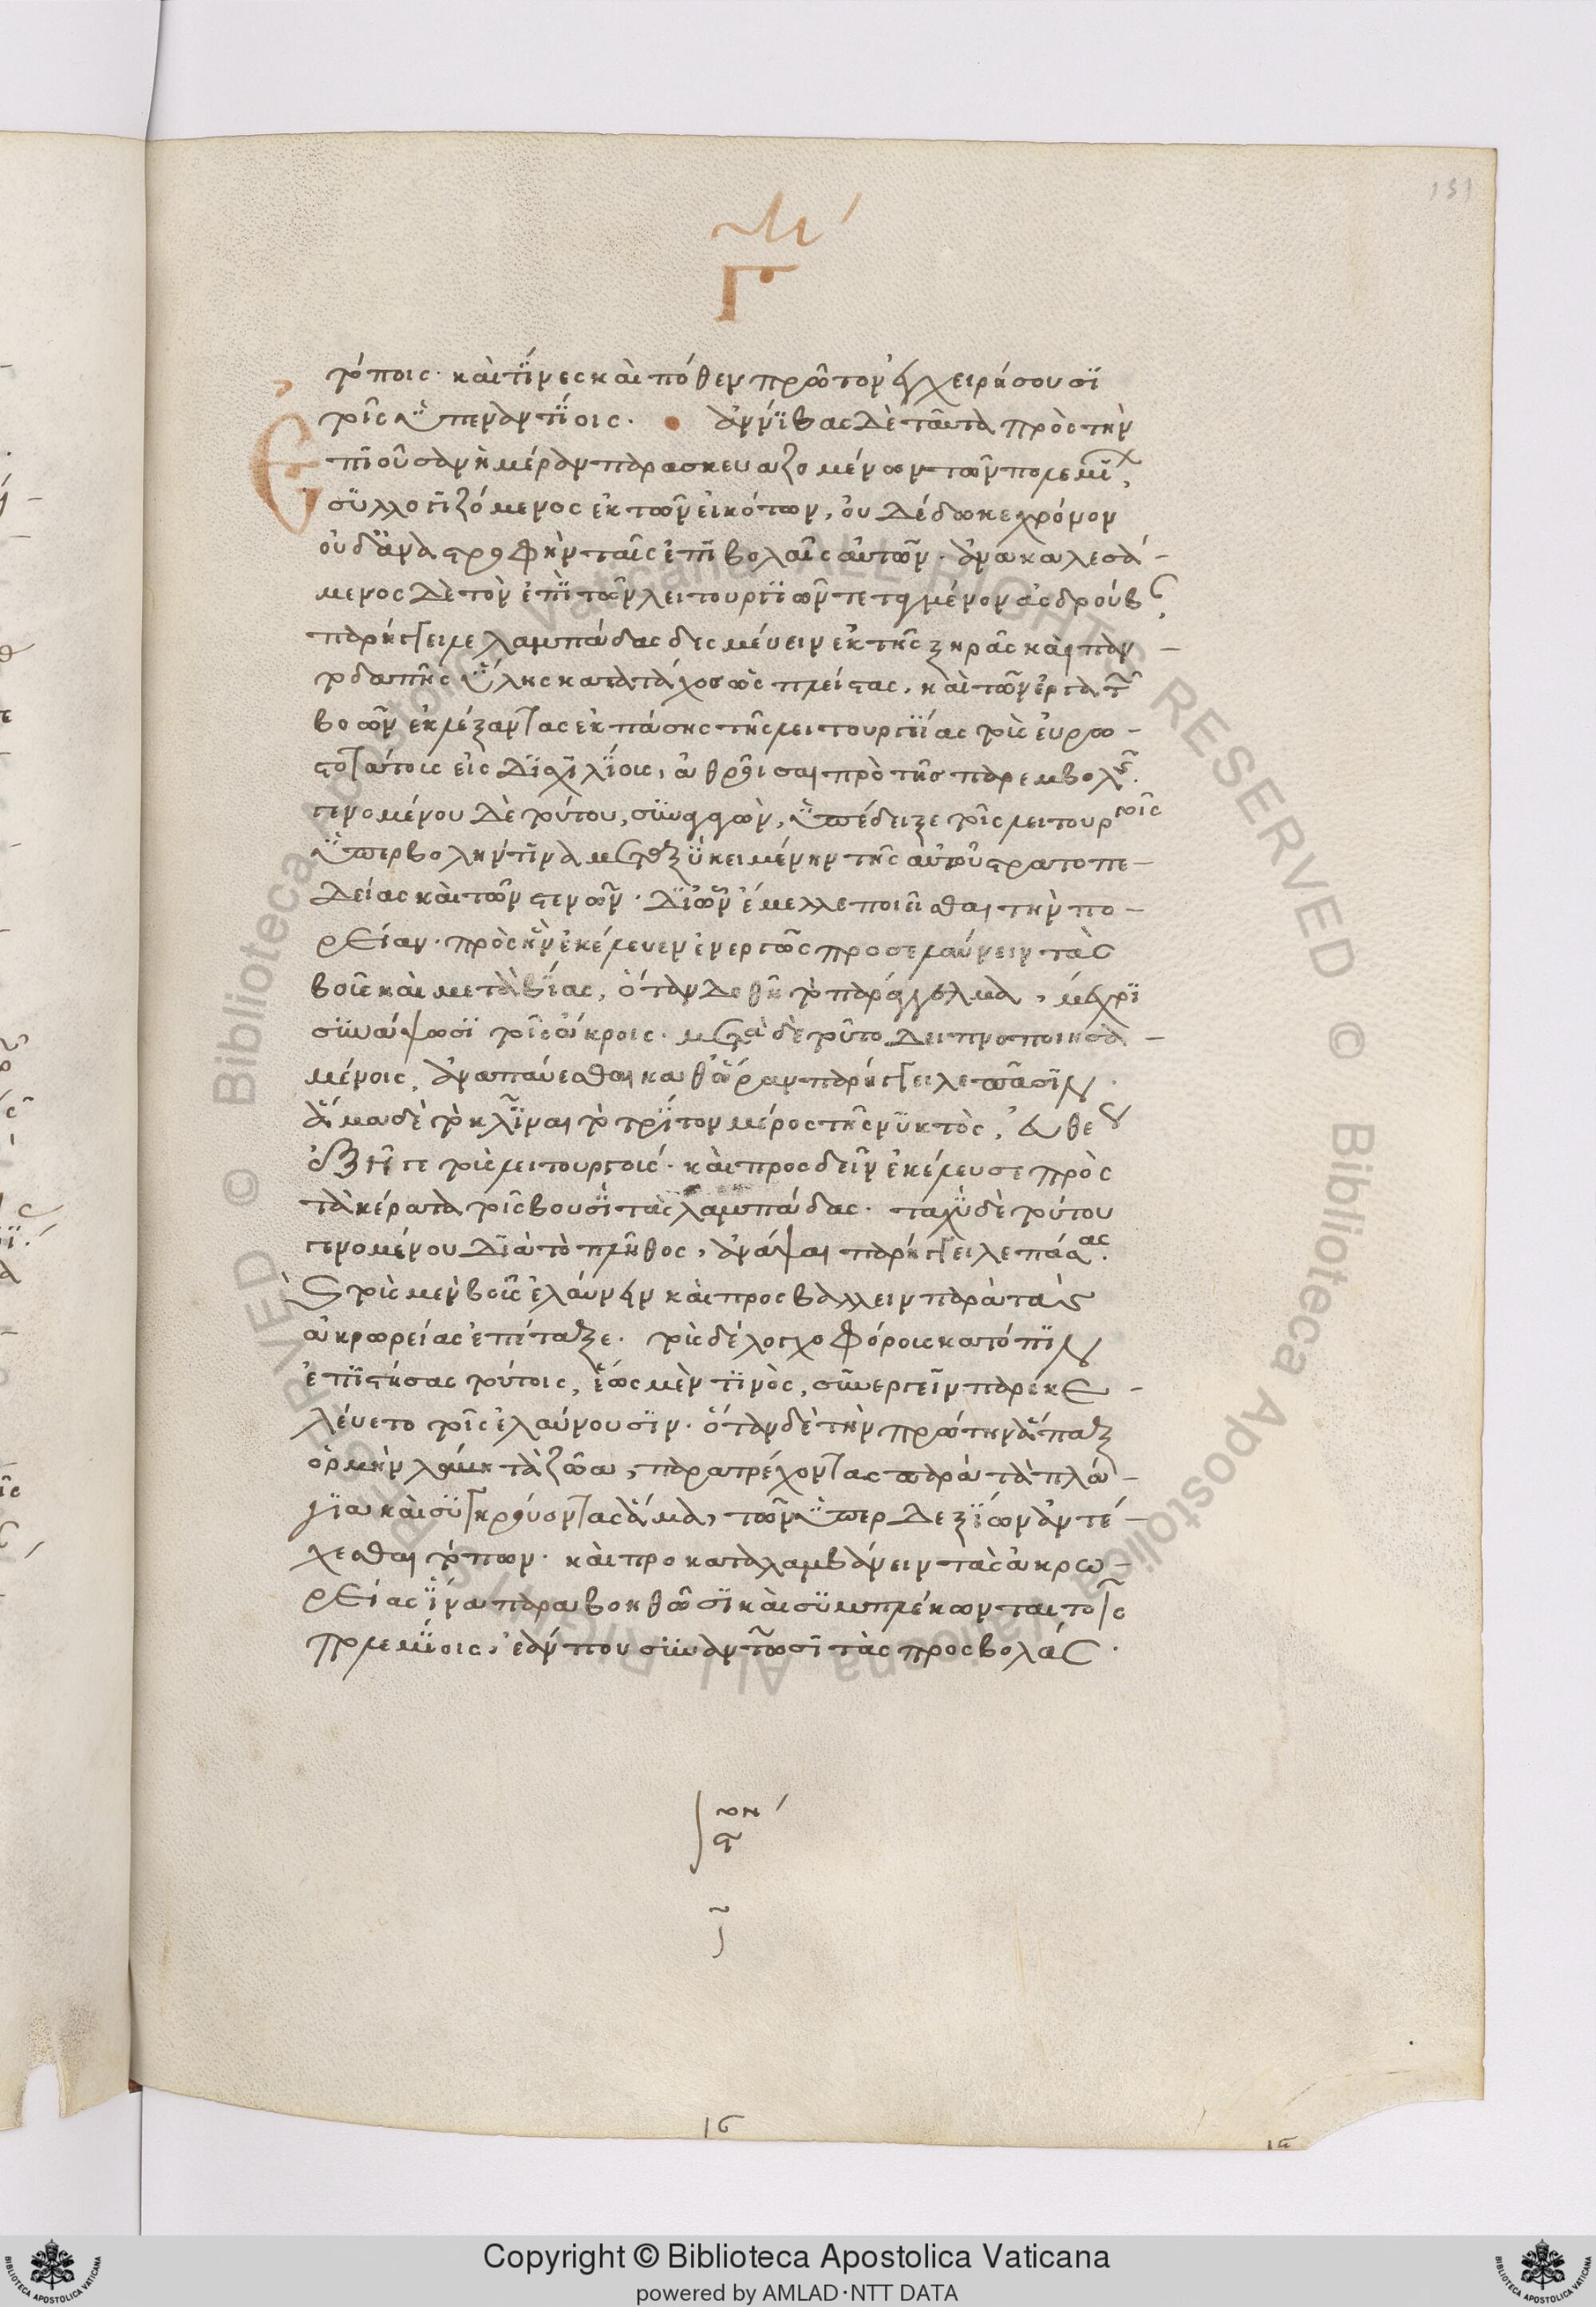 131
Γ
τόποις· καὶ τίνες καὶ πόθεν πρῶτον ἐγχειρήσουσι
τοῖς ὑπεναντίοις· ἀννίβας δὲ ταῦτα πρὸς τὴν
ἐπιοῦσαν ἡμέραν παρασκευαζομένων τῶν πολεμί,
συλλογιζόμενος ἐκ τῶν εἰκότων, οὐ δέδωκε χρόνον
οὐδ' ἀναστροφὴν ταῖς ἐπιβολαῖς αὐτῶν· ἀνακαλεσά-
μενος δὲ τὸν ἐπὶ τῶν λειτουργιῶν τεταγμένον ἀσδρούβ,
παρήγγειλε λαμπάδας δεσμεύειν ἐκ τῆς ξηρᾶς καὶ παν-
τοδαπῆς ὕλης κατὰ τάχος ὡς πλείστας, καὶ τῶν ἐργατ
βοῶν ἐκλέξαντας ἐκ πάσης τῆς λειτουργίας τοὺς εὐρω-
στοτάτους εἰς δισχιλίους, ἀθροῖσαι πρὸ τῆς παρεμβολῆς.
γενομένου δὲ τούτου, συναγαγὼν, ὑπέδειξε τοῖς λειτουργοῖς
ὑπερβολήν τινα μεταξὺ κειμένην τῆς αὐτοῦ στρατοπε-
δείας καὶ τῶν στενῶν· δι' ὧν ἔμελλε ποιεῖσθαι τὴν πο-
ρείαν· πρὸς ἣν ἐκέλευεν ἐνεργῶς προσελαύνειν τὰς
βοῦς καὶ μετὰ βίας, ὅταν δοθῇ τὸ παράγγελμα, μέχρι
συνάψωσι τοῖς ἄκροις. μετὰ δὲ τοῦτο δειπνοποιησα-
μένους, ἀναπαύεσθαι καθ' ὥραν παρήγγειλε πᾶσιν.
ἅμα δὲ τὸ κλῖναι τὸ τρίτον μέρος τῆς νυκτὸς, εὐθέως
ἐξῆγε τοὺς λειτουργούς· καὶ προσδεῖν ἐκέλευσε πρὸς
τὰ κέρατα τοῖς βουσὶ τὰς λαμπάδας· ταχὺ δὲ τούτου
γενομένου διὰ τὸ πλῆθος, ἀνάψαι παρήγγειλε πάσας.
καὶ τοὺς μὲν βοῦς ἐλαύνειν καὶ προσβάλλειν παρὰ τὰς
ἀκρωρείας ἐπέταξε. τοὺς δὲ λογχοφόρους κατόπιν
ἐπιστήσας τούτοις, ἕως μὲν τινὸς, συνεργεῖν παρεκε-
λεύετο τοῖς ἐλαύνουσιν· ὅταν δὲ τὴν πρώτην ἅπαξ
ὁρμὴν λάβῃ τὰ ζῶα, παρατρέχοντας παρὰ τὰ πλά-
για καὶ συγκρούοντας ἅμα, τῶν ὑπερδεξίων ἀντέ-
χεσθαι τόπων· καὶ προκαταλαμβάνειν τὰς ἀκρω-
ρείας ἵνα παραβοηθῶσι καὶ συμπλέκωνται τοῖς
πολεμίοις, ἐάν που συναντῶσι τὰς προσβολάς.
16
Copyright © Biblioteca Apostolica Vaticana
powered by AMLAD·NTT DATA